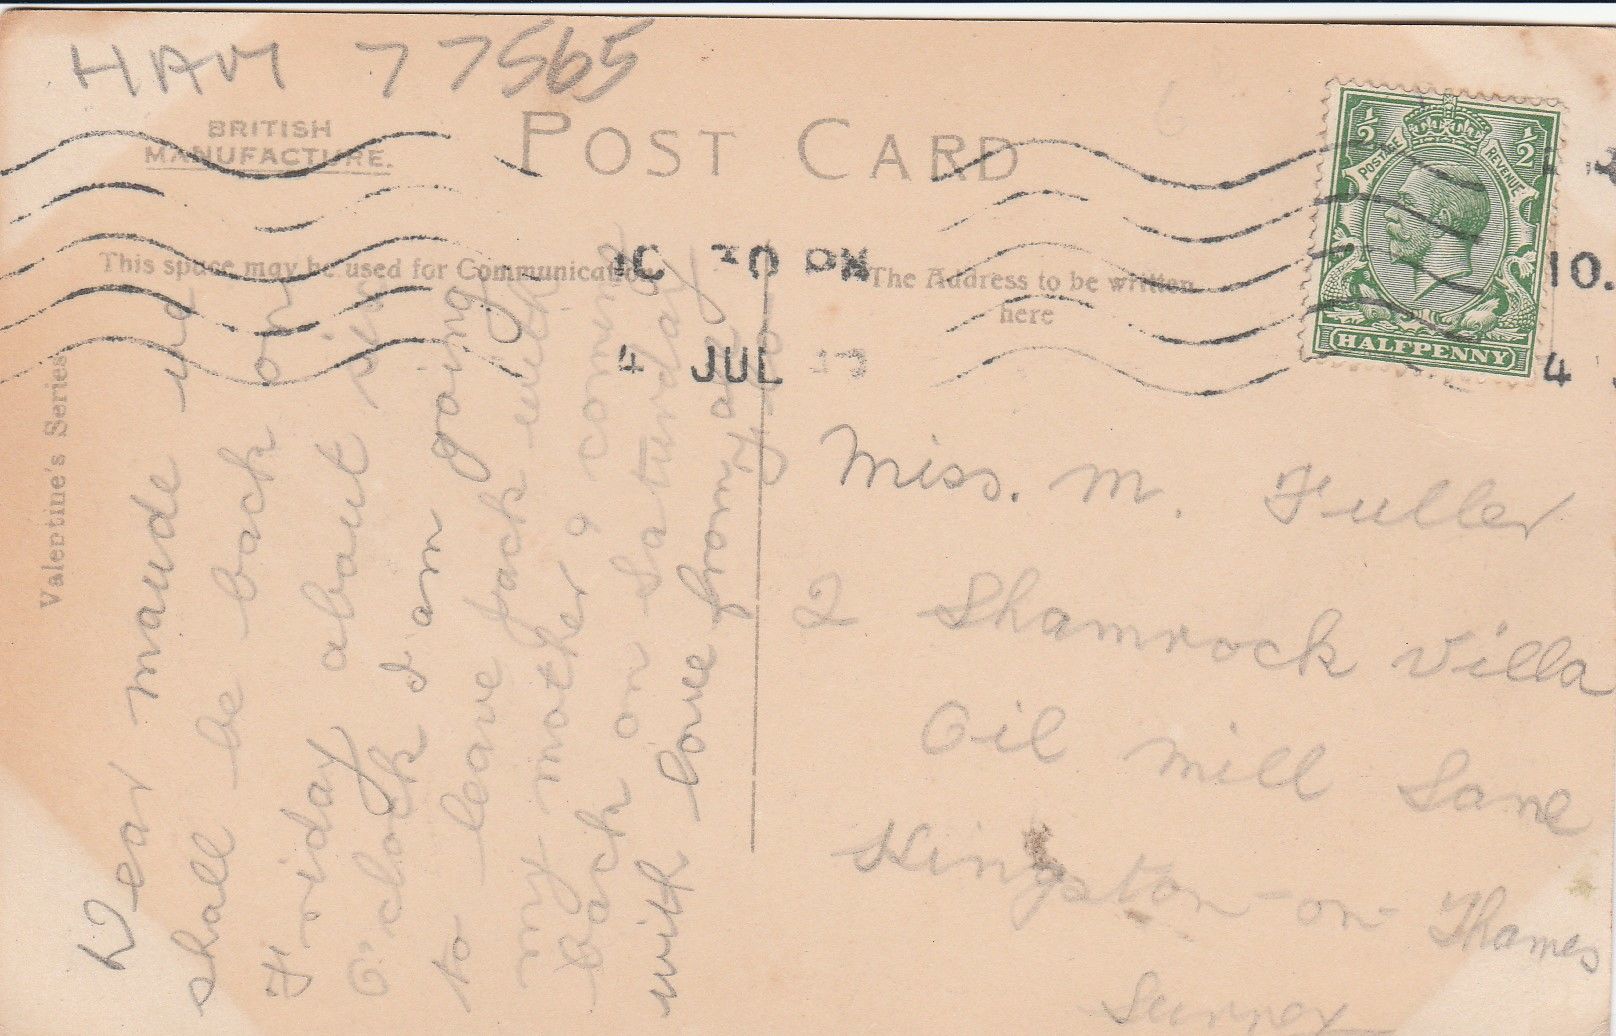 HAM 77565
BRITISH
MANUFACTURE.
POST CARD
This space may be used for Communication
The Address to be written
here
Valentine's Series
½ ½
POSTAGE REVENUE
HALFPENNY
4 JUL
10.
4
Dear maude we
shall be back on
Friday about six
O'clock I am going
to leave Jack with
my mother & coming
back on Saturday
with love from
Miss. M. Fuller
2 Shamrock Villa
Oil Mill Lane
Kingston-on-Thames
Surrey